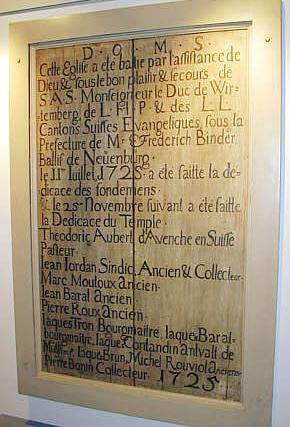 D · O · M · S ·
Cette Eglise a été batie par l'assistance de
Dieu & sous le bon plaisir & secours de
S·A·S· Monseigneur le Duc de Wir-
temberg, de L·H·P· & des L·L·
Cantons Suisses Evangeliques, sous la
Prefecture de M· Frederich Binder
Ballif de Neüenburg·
le 11e Iuillet, 1725· a été faitte la dé-
dicace des fondemens·
& le 25e Novembre suivant a été faitte
la Dedicace du Temple·
Theodoric Aubert d'Avenche en Suisse
Pasteur·
Iean Iordan Sindic, Ancien & Collecteur·
Marc Moutoux ancien·
Iean Baral ancien·
Pierre Roux ancien·
Iaques Tron Bourgmaitre, Iaque Baral·
bourgmaitre, Iaque Contandin
Iaque Brun, Michel Rouviol anciens·
Pierre Bonin Collecteur· 1725·